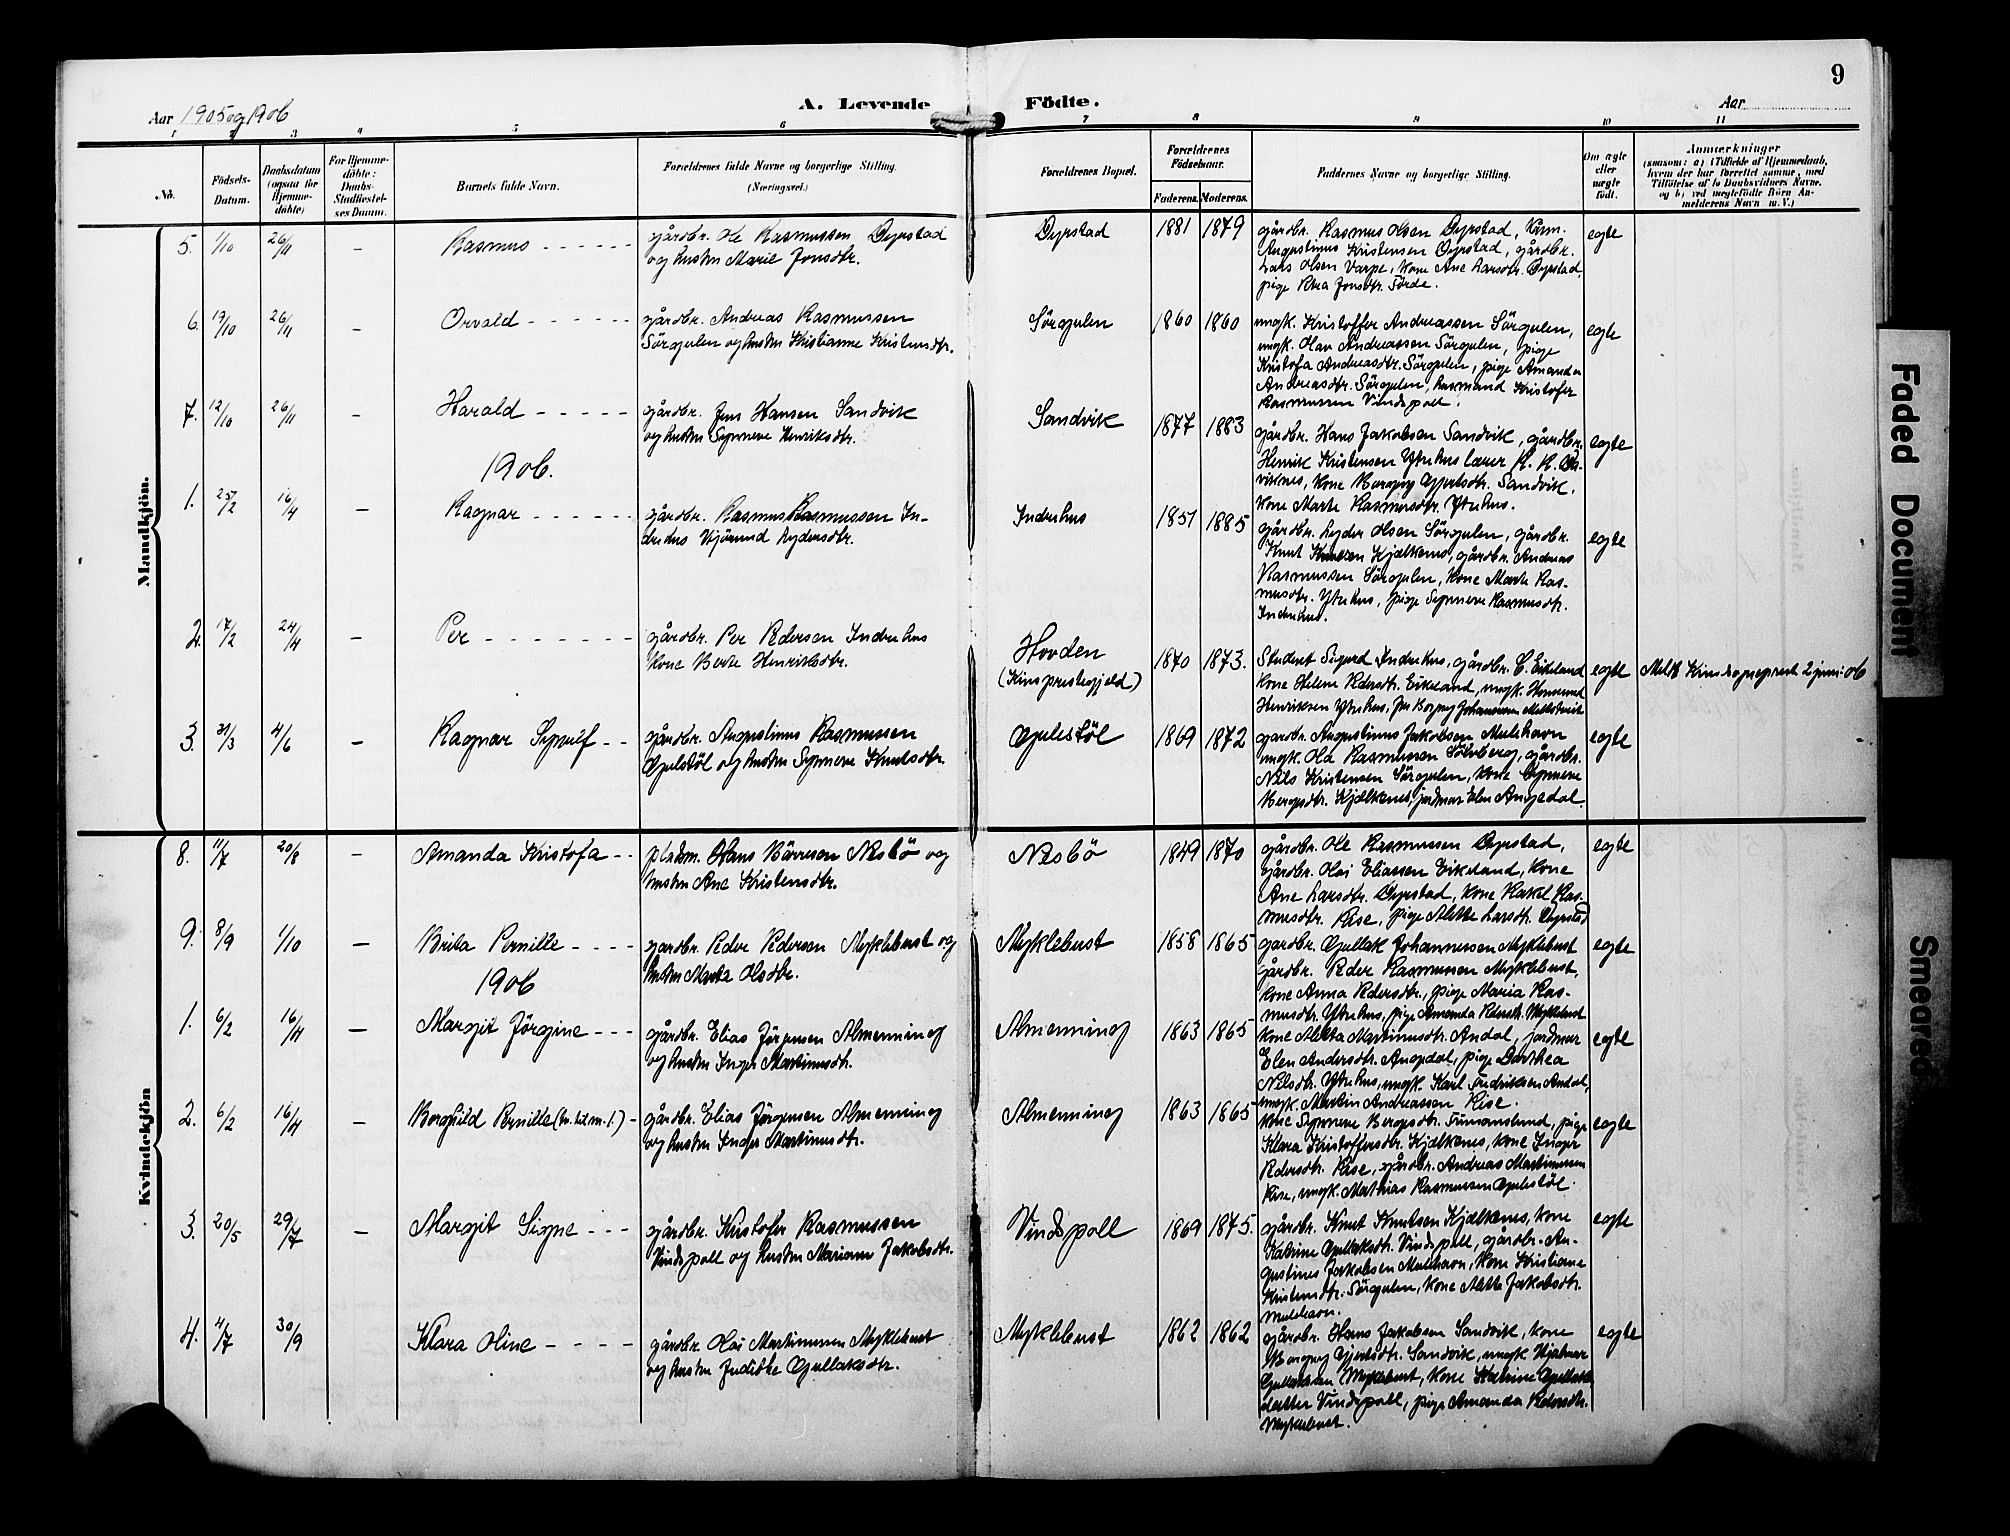 9
Aar 1905 og 1906
A. Levende Födte.
Aar
1 2 3 4 5 6 7 8 9 10 11
No.
Födsels-Datum.
Daabsdatum (ogsaa for Hjemme-döbte)
For Hjemme-döbte: Daabs-Stadfæstel-ses Datum.
Barnets fulde Navn.
Forældrenes fulde Navne og borgerlige Stilling.
(Næringsvei.)
Forældrenes Bopæl.
Forældrenes Födselsaar.
Faderens. Moderens.
Faddernes Navne og borgerlige Stilling.
Om ægte eller uægte födt.
Anmærkninger
(saasom: a) i Tilfælde af Hjemmedaab,
hvem der har forrettet samme, med
Tilföielse af to Daabsvidners Navne,
og b) ved uægtefödte Börn An-
melderens Navn m. V.)
Mandkjön.
5. 1/10 26/11 – Rasmus
gårdbr. Ole Rasmussen Dyrstad
og hustru Marie Jonsdtr.
Dyrstad 1881 1879
gårdbr. Rasmus Olsen Dyrstad,
Augustinus Kristensen Dyrstad, gårdbr.
Lars Olsen Varpe, kone Ane Larsdtr. Dyrstad,
pige Petra Jonsdtr. Förde.
egte
6. 19/10 26/11 – Orvald
gårdbr. Andreas Rasmussen
Sörgulen og hustru Kristianne Kristensdtr.
Sörgulen 1860 1860
ungk. Kristoffer Andreassen Sörgulen,
ungk. Olav Andreassen Sörgulen, pige
Kristofa Andreasdtr. Sörgulen, pige Amanda
Andreasdtr. Sörgulen, husmand Kristofer
Rasmussen Vindspoll.
egte
7. 12/10 26/11 – Harald
gårdbr. Jens Hansen Sandvik
og hustru Synneve Henriksdtr.
Sandvik 1877 1883
gårdbr. Hans Jakobsen Sandvik, gårdbr.
Henrik Kristensen Ytrehus lærer K. K.
kone Borgny Gjertsdtr. Sandvik,
kone Marte Rasmusdtr. Ytrehus.
egte
1906.
1. 25/2 16/4 – Ragnar
gårdbr. Rasmus Rasmussen In-
drehus Lydersdtr.
Indrehus 1851 1885
gårdbr. Lyder Olsen Sörgulen, gårdbr.
Knut Knutsen Kjælkenes, gårdbr. Andreas
Rasmussen Sörgulen, kone Marte Ras-
musdtr. Ytrehus, pige Synneve Rasmusdtr.
Indrehus.
egte
2. 17/2 24/4 – Per
gårdbr. Per Pedersen Indrehus
kone Berte Henriksdtr.
Hovden
(Kins prestegjeld)
1870 1873.
Student Sigurd Indrehus, gårdbr. C. Eikeland
kone Helene Pedersdtr. Eikeland, ungk.
Henriksen Ytrehus,
egte
Meldt Kins sogneprest 2 juni 06
3. 31/3 4/6 – Ragnar Synulf
gårdbr. Augustinus Rasmussen
Gulestöl og hustru Synneve Knutsdtr.
Gulestöl 1869 1872
gårdbr. Augustinus Jakobsen Mulehavn
ungk. Ola Rasmussen Sölvberg, gårdbr.
Nils Kristensen Sörgulen, kone Synneve
Bergsdtr. Kjælkenes, jordmor Elen Angedal.
egte
Kvindekjön
8. 11/7 20/8 – Amanda Kristofa
pladsm. Hans Börresen Nesbö og
hustru Ane Kristensdtr.
Nesbö 1849 1870
gårdbr. Ole Rasmussen Dyrstad,
gårdbr. Elias Eliassen Eikeland, kone
Ane Larsdtr. Dyrstad, kone Rakel Ras-
musdtr. Rise, pige Alette Larsdtr. Dyrstad
egte
9. 8/9 1/10 – Brita Pernille
gårdbr. Peder Pedersen Myklebust og
hustru Marta Olsdtr.
Myklebust 1858 1865
gårdbr. Gullak Johannessen Myklebust
gårdbr. Peder Rasmussen Myklebust,
kone Anna Pedersdtr., pige Maria Ras-
musdtr. Ytrehus, pige Amanda Pedersdtr. Myklebust
egte
1906
1. 6/2 16/4 – Margit Jörgine
gårdbr. Elias Jörgensen Almenning
og hustru Inger Martinusdtr.
Almenning 1863 1865
kone Aletta Martinusdtr. Andal, jordmor
Elen Andersdtr. Angedal, pige Dorthea
Nilsdtr. Ytrehus, ungk. Karl Fredriksen Andal,
ungk. Martin Andreassen Rise.
egte
2. 6/2 16/4 – Borghild Pernille
gårdbr. Elias Jörgensen Almenning
og hustru Inger Martinusdtr.
Almenning 1863 1865
kone Synneve Bergsdtr. pige
Klara Kristoffersdtr. Kjælkenes, kone Inger
Pedersdtr. Rise, gårdbr. Andreas Martinussen
Rise, ungk. Mathias Rasmussen Gulestöl.
egte
3. 20/5 29/7 – Margit Signe
gårdbr. Kristofer Rasmussen
Vindspoll og hustru Marianne Jakobsdtr.
Vindspoll 1869 1875.
gårdbr. Knut Knutsen Kjælkenes, kone
Katrine Gullaksdtr. Vindspoll, gårdbr. Au-
gustinus Jakobsen Mulehavn, kone Kristiane
Kristensdtr. Sörgulen, kone Alette Jakobsdtr.
Mulehavn.
egte
4. 4/7 30/9 Klara Oline
gårdbr. Martinussen Myklebust
og hustru Judithe Gullaksdtr.
Myklebust 1862 1862
gårdbr. Hans Jakobsen Sandvik, kone
Borgny Gjertsdtr. Sandvik, ungk Hjalmar
Gullaksen Myklebust, kone Katrine Gullaks
datter Vindspoll, pige Amanda Pedersdtr.
Myklebust.
egte
Faded Document
Smeared